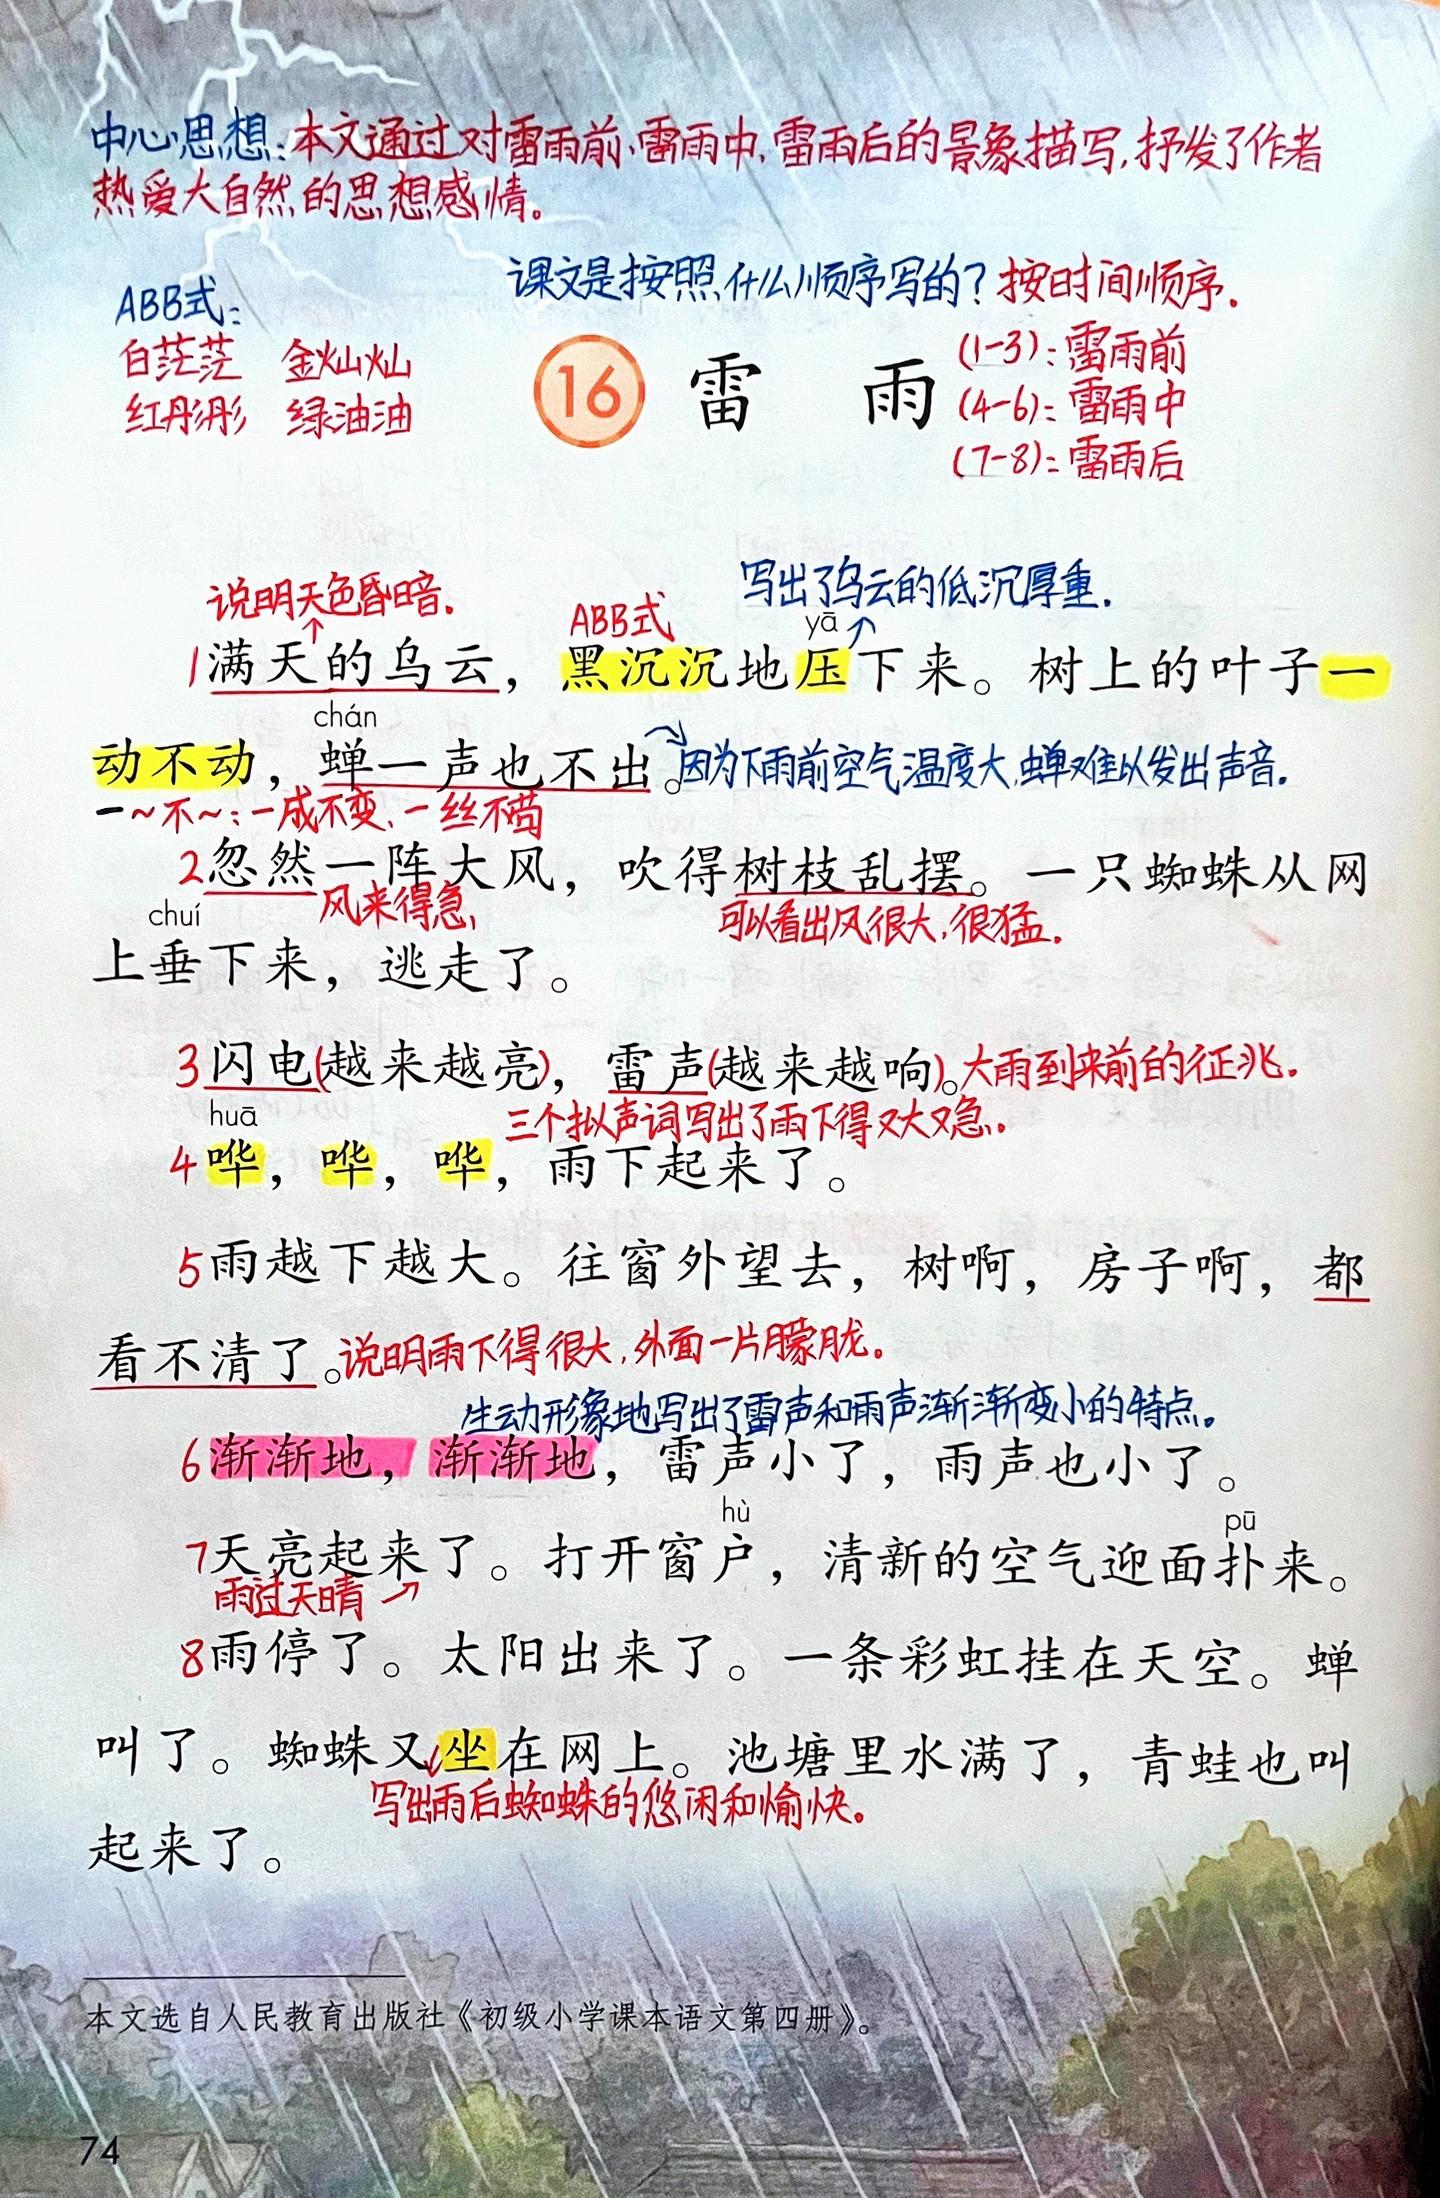 中心思想：本文通过对雷雨前、雷雨中、雷雨后的景象描写，抒发了作者
热爱大自然的思想感情。
课文是按照什么顺序写的？按时间顺序。
ABB式：
白茫茫 金灿灿
红彤彤 绿油油
16 雷 雨
(1-3)：雷雨前
(4-6)：雷雨中
(7-8)：雷雨后
说明天色昏暗。
ABB式
写出了乌云的低沉厚重。
yā
1满天的乌云，黑沉沉地压下来。树上的叶子一
chán
动不动，蝉一声也不出。因为下雨前空气温度大，蝉难以发出声音。
一~不~：一成不变、一丝不苟
2忽然一阵大风，吹得树枝乱摆。一只蜘蛛从网
风来得急，
可以看出风很大，很猛。
chuí
上垂下来，逃走了。
3闪电(越来越亮)，雷声(越来越响)。大雨到来前的征兆。
huā
三个拟声词写出了雨下得又大又急。
4哗，哗，哗，雨下起来了。
5雨越下越大。往窗外望去，树啊，房子啊，都
看不清了。说明雨下得很大，外面一片朦胧。
生动形象地写出了雷声和雨声渐渐变小的特点。
6渐渐地，渐渐地，雷声小了，雨声也小了。
hù pū
7天亮起来了。打开窗户，清新的空气迎面扑来。
雨过天晴
8雨停了。太阳出来了。一条彩虹挂在天空。蝉
叫了。蜘蛛又坐在网上。池塘里水满了，青蛙也叫
写出雨后蜘蛛的悠闲和愉快。
起来了。
本文选自人民教育出版社《初级小学课本语文第四册》。
74